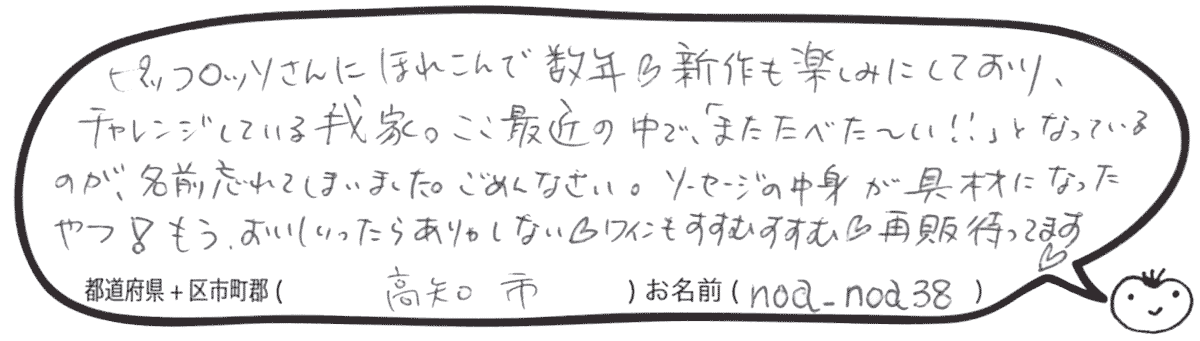 ピッコロッソさんにほれこんで数年♡新作も楽しみにしており、
チャレンジしている我家。ここ最近の中で、「またたべた〜い!!」となっている
のが、名前忘れてしまいました。ごめんなさい。ソーセージの中身が具材になった
やつ!もう、おいしいったらありゃしない♡ワインもすすむすすむ♡再販待ってます♡
都道府県+区市町郡(高知市)お名前(noa_noa38)